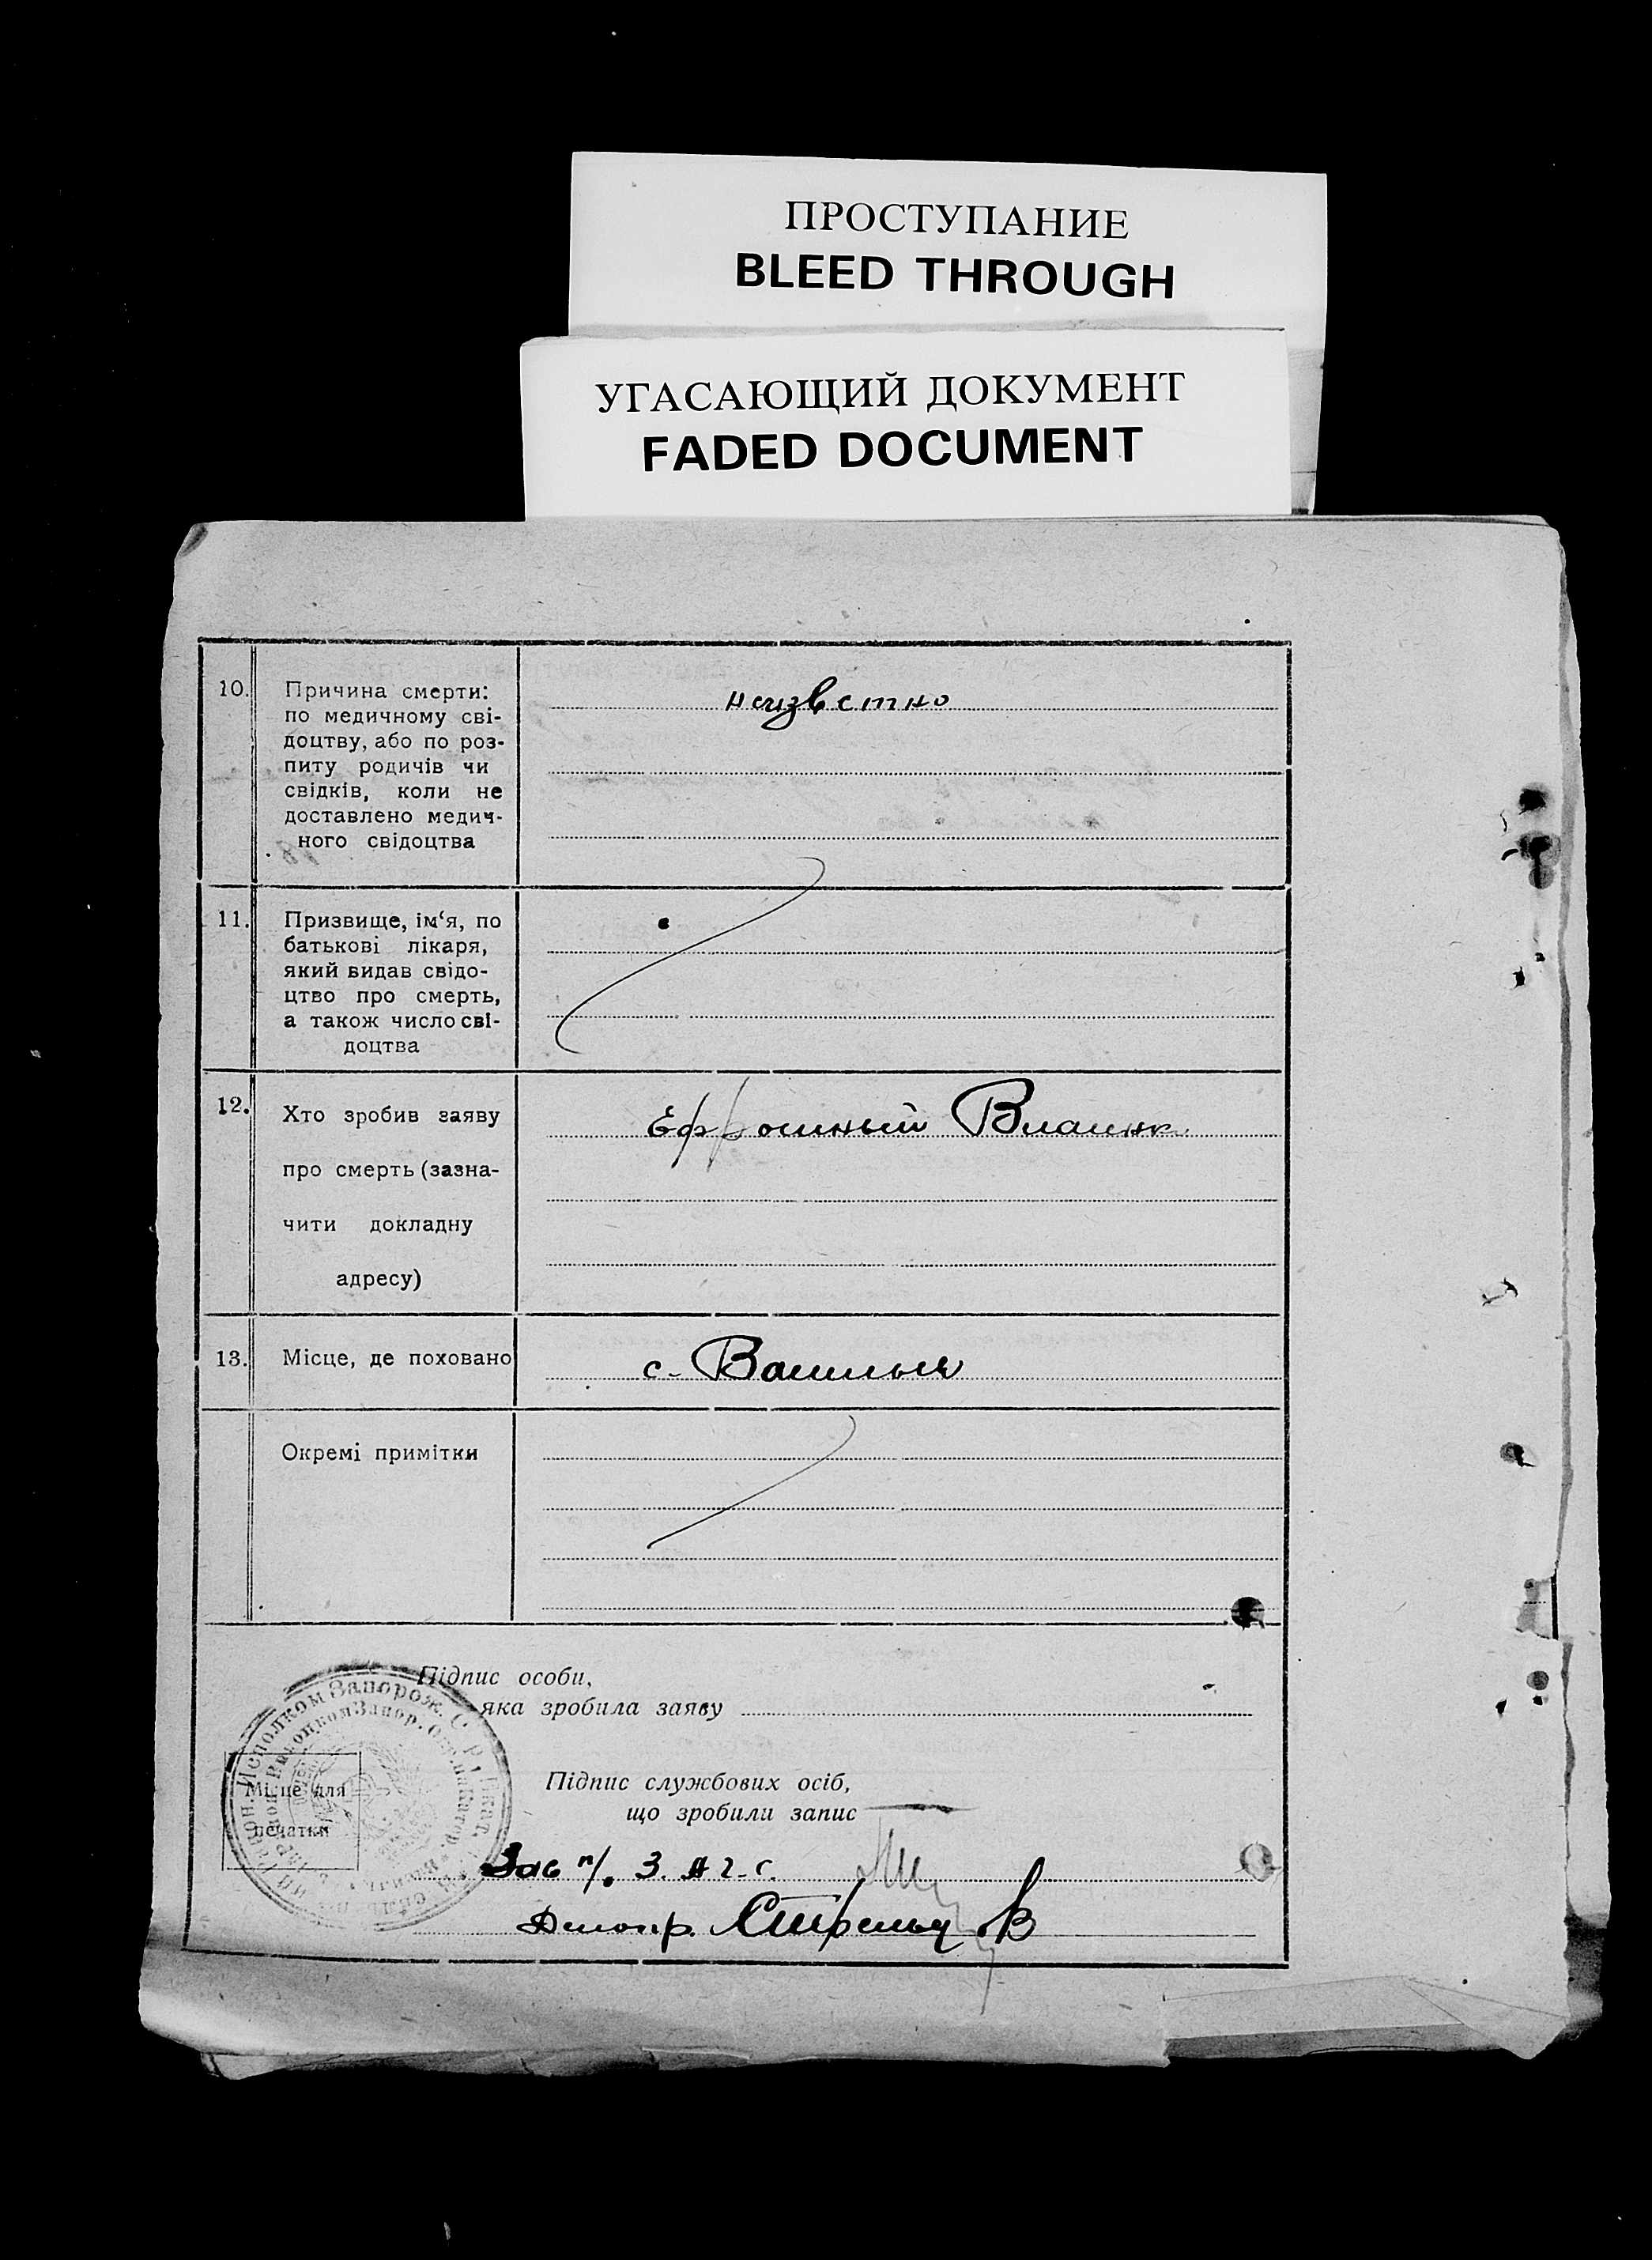 ПРОСТУПАНИЕ
BLEED THROUGH
УГАСАЮЩИЙ ДОКУМЕНТ
FADED DOCUMENT
10. Причина смерти: неизвестно
по медичному сві-
доцтву, або по роз-
питу родичів чи
свідків, коли не
доставлено медич-
ного свідоцтва
11. Призвище, ім‘я, по
батькові лікаря,
який видав свідо-
цтво про смерть,
а також число сві-
доцтва
12. Хто зробив заяву
про смерть (зазна-
чити докладну
адресу)
13. Місце, де поховано с.
Окремі примітки
Підпис особи,
яка зробила заяву
Місце для
печатки
Підпис службових осіб,
що зробили запис
Зав п/. З.А.Г.С.
Делопр.